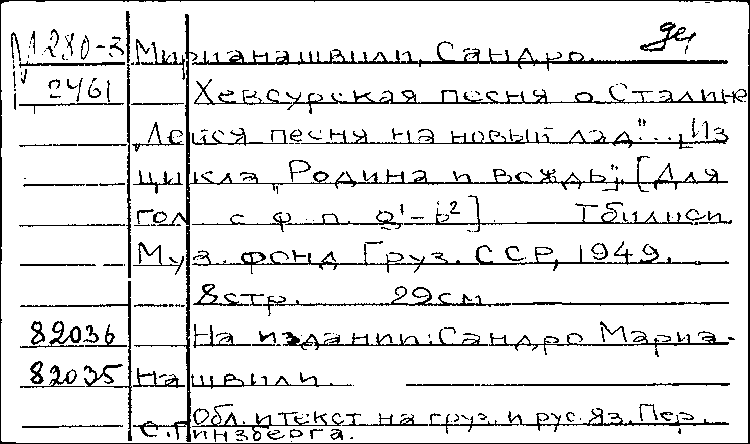 М280-3 Мирианашвили, Сандро.
2461 Хевсурская песня о Сталине
„Лейся песня на новый лад"... [Из
цикла „Родина и вождь"]. [Для
гол. с ф.-п. a¹-b²]. Тбилиси.
Муз. фонд Груз. ССР, 1949.
8стр. 29см
82036 На издании: Сандро Мариа-
82035 нашвили.
Обл. и текст на груз. и рус. яз. Пер.
С. Гинзберга.